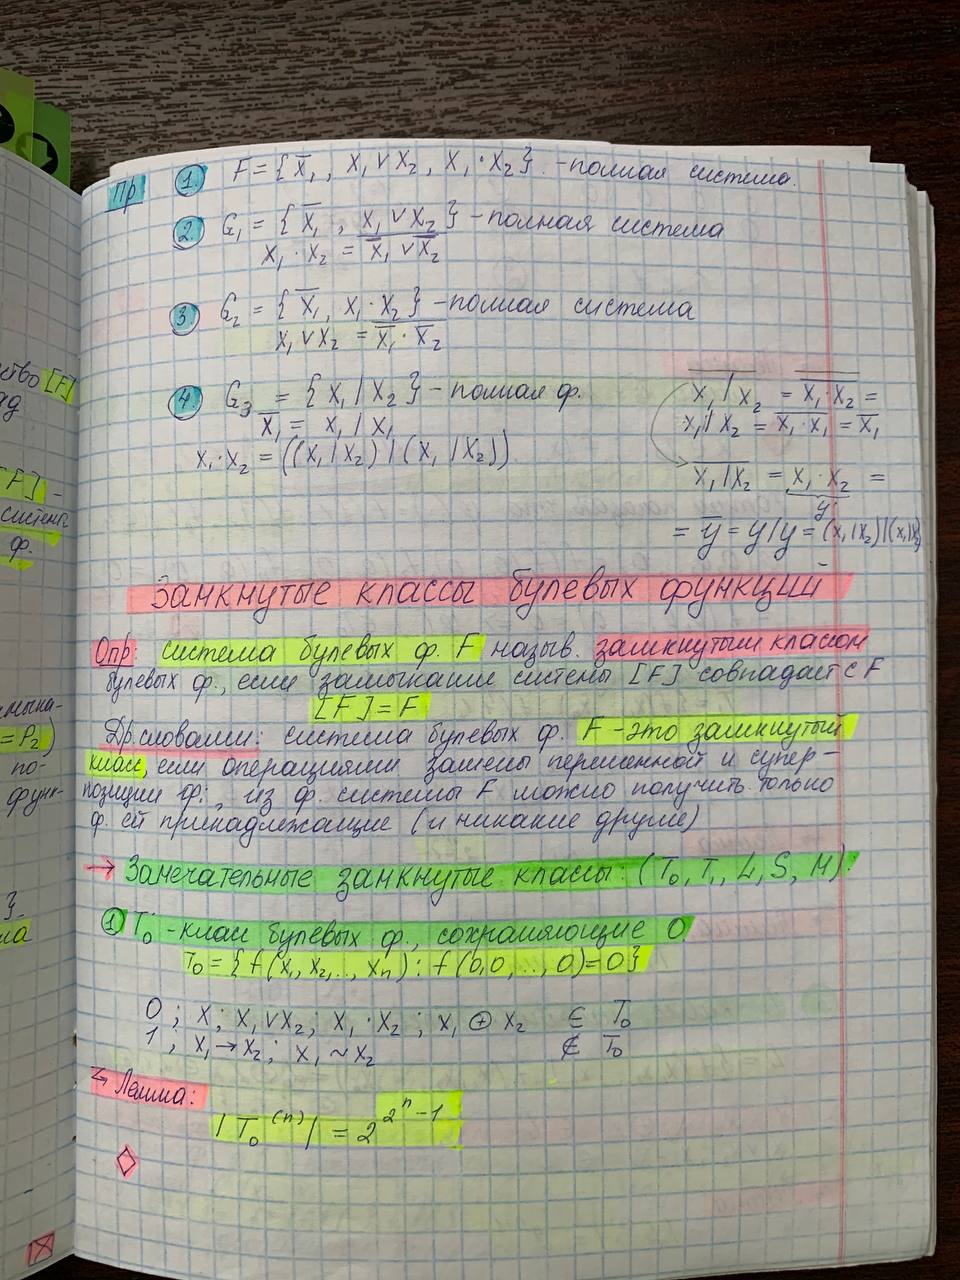 ство [F]
[F] -
система
ф.
мыка-
= P₂)
по-
функ-
Пр 1. F = { x̅₁, x₁ ∨ x₂, x₁ · x₂ } - полная система.
2. G₁ = { x̅₁, x₁ ∨ x₂ } - полная система
x₁ · x₂ = \overline{x̅₁ ∨ x̅₂}
3. G₂ = { x̅₁, x₁ · x₂ } - полная система
x₁ ∨ x₂ = \overline{x̅₁ · x̅₂}
4. G₃ = { x₁ | x₂ } - полная ф.
x̅₁ = x₁ | x₁
x₁ · x₂ = ((x₁ | x₂) | (x₁ | x₂))
x₁ | x₂ = \overline{x₁ · x₂} =
x₁ | x₂ = \overline{x₁ · x₁} = x̅₁
\overline{x₁ | x₂} = x₁ · x₂ =
y
= y̅ = y | y = (x₁ | x₂) | (x₁ | x₂)
Замкнутые классы булевых функций
Опр: система булевых ф. F назыв. замкнутым классом
булевых ф., если замыкание системы [F] совпадает с F
[F] = F
Др.словами: система булевых ф. F - это замкнутый
класс, если операциями замены переменной и супер-
позиции ф., из ф. системы F можно получить только
ф. ей принадлежащие (и никакие другие)
→ Замечательные замкнутые классы: (T₀, T₁, L, S, M):
1 T₀ - класс булевых ф., сохраняющие 0
T₀ = { f(x₁, x₂, ..., xₙ) : f(0,0, ..., 0) = 0 }
0 ; x ; x₁ ∨ x₂ ; x₁ · x₂ ; x₁ ⊕ x₂ ∈ T₀
1 ; x₁ → x₂ ; x₁ ~ x₂ ∉ T₀
Лемма:
| T₀⁽ⁿ⁾ | = 2^{2^n - 1}